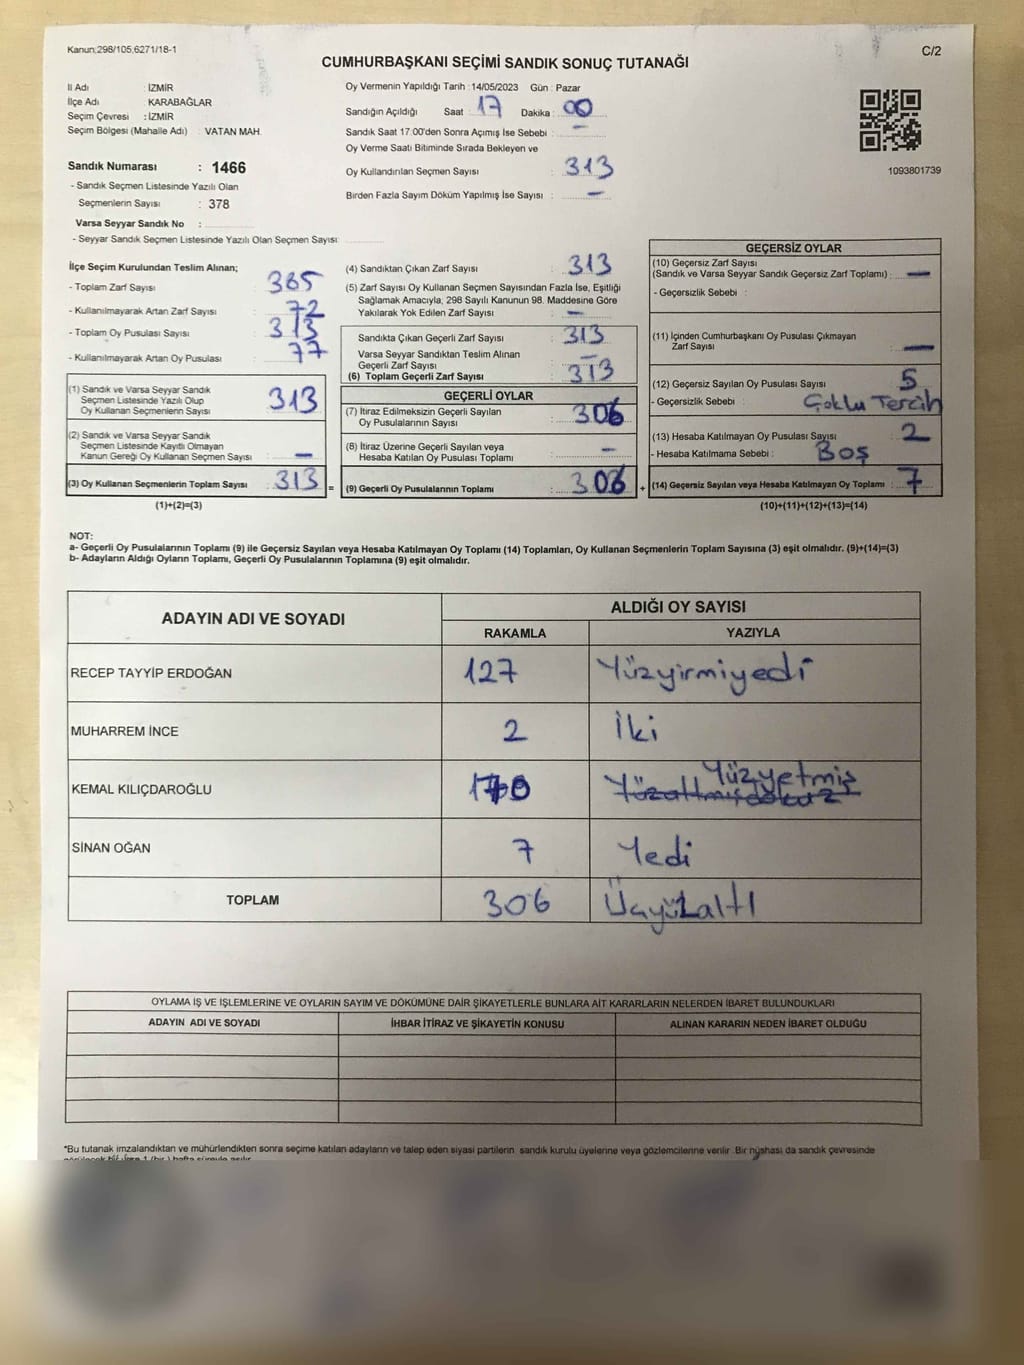 Kanun:298/105,6271/18-1
C/2
CUMHURBAŞKANI SEÇİMİ SANDIK SONUÇ TUTANAĞI
İl Adı : İZMİR
İlçe Adı : KARABAĞLAR
Seçim Çevresi : İZMİR
Seçim Bölgesi (Mahalle Adı) : VATAN MAH.
Sandık Numarası : 1466
- Sandık Seçmen Listesinde Yazılı Olan
Seçmenlerin Sayısı : 378
Varsa Seyyar Sandık No :
- Seyyar Sandık Seçmen Listesinde Yazılı Olan Seçmen Sayısı:
Oy Vermenin Yapıldığı Tarih :14/05/2023 Gün : Pazar
Sandığın Açıldığı Saat : 17 Dakika : 00
Sandık Saat 17.00'den Sonra Açımış İse Sebebi : —
Oy Verme Saati Bitiminde Sırada Bekleyen ve
Oy Kullandırılan Seçmen Sayısı : 313
Birden Fazla Sayım Döküm Yapılmış İse Sayısı : —
1093801739
İlçe Seçim Kurulundan Teslim Alınan;
- Toplam Zarf Sayısı : 385
- Kullanılmayarak Artan Zarf Sayısı : 72
- Toplam Oy Pusulası Sayısı : 313
- Kullanılmayarak Artan Oy Pusulası : 77
(1) Sandık ve Varsa Seyyar Sandık
Seçmen Listesinde Yazılı Olup
Oy Kullanan Seçmenlerin Sayısı : 313
(2) Sandık ve Varsa Seyyar Sandık
Seçmen Listesinde Kayıtlı Olmayan
Kanun Gereği Oy Kullanan Seçmen Sayısı : —
(3) Oy Kullanan Seçmenlerin Toplam Sayısı : 313 =
(1)+(2)=(3)
(4) Sandıktan Çıkan Zarf Sayısı : 313
(5) Zarf Sayısı Oy Kullanan Seçmen Sayısından Fazla İse, Eşitliği
Sağlamak Amacıyla, 298 Sayılı Kanunun 98. Maddesine Göre
Yakılarak Yok Edilen Zarf Sayısı : —
Sandıkta Çıkan Geçerli Zarf Sayısı : 313
Varsa Seyyar Sandıktan Teslim Alınan
Geçerli Zarf Sayısı : —
(6) Toplam Geçerli Zarf Sayısı : 313
GEÇERLİ OYLAR
(7) İtiraz Edilmeksizin Geçerli Sayılan
Oy Pusulalarının Sayısı : 306
(8) İtiraz Üzerine Geçerli Sayılan veya
Hesaba Katılan Oy Pusulası Toplamı : —
(9) Geçerli Oy Pusulalarının Toplamı : 306 +
GEÇERSİZ OYLAR
(10) Geçersiz Zarf Sayısı
(Sandık ve Varsa Seyyar Sandık Geçersiz Zarf Toplamı) : —
- Geçersizlik Sebebi :
(11) İçinden Cumhurbaşkanı Oy Pusulası Çıkmayan
Zarf Sayısı : —
(12) Geçersiz Sayılan Oy Pusulası Sayısı : 5
- Geçersizlik Sebebi : Çoklu Tercih
(13) Hesaba Katılmayan Oy Pusulası Sayısı : 2
- Hesaba Katılmama Sebebi : Boş
(14) Geçersiz Sayılan veya Hesaba Katılmayan Oy Toplamı : 7
(10)+(11)+(12)+(13)=(14)
NOT:
a- Geçerli Oy Pusulalarının Toplamı (9) ile Geçersiz Sayılan veya Hesaba Katılmayan Oy Toplamı (14) Toplamları, Oy Kullanan Seçmenlerin Toplam Sayısına (3) eşit olmalıdır. (9)+(14)=(3)
b- Adayların Aldığı Oyların Toplamı, Geçerli Oy Pusulalarının Toplamına (9) eşit olmalıdır.
ADAYIN ADI VE SOYADI ALDIĞI OY SAYISI
RAKAMLA YAZIYLA
RECEP TAYYİP ERDOĞAN 127 Yüzyirmiyedi
MUHARREM İNCE 2 İki
KEMAL KILIÇDAROĞLU 170 Yüzyetmiş
Yüzaltmışdokuz
SİNAN OĞAN 7 Yedi
TOPLAM 306 Üçyüzaltı
OYLAMA İŞ VE İŞLEMLERİNE VE OYLARIN SAYIM VE DÖKÜMÜNE DAİR ŞİKAYETLERLE BUNLARA AİT KARARLARIN NELERDEN İBARET BULUNDUKLARI
ADAYIN ADI VE SOYADI İHBAR İTİRAZ VE ŞİKAYETİN KONUSU ALINAN KARARIN NEDEN İBARET OLDUĞU
*Bu tutanak imzalandıktan ve mühürlendikten sonra seçime katılan adayların ve talep eden siyasi partilerin sandık kurulu üyelerine veya gözlemcilerine verilir. Bir nüshası da sandık çevresinde